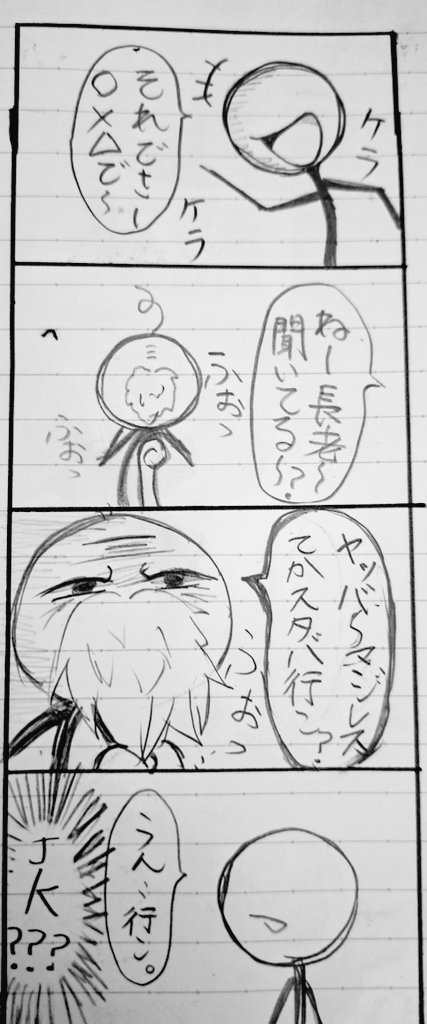 ケラ
ケラ
それでさー
○×△で〜
ねー長老〜
聞いてる〜?
ふぉっ
ふぉっ
ヤッバ〜マジレス
てかスタバ行こ?
ふぉっ
うん…行こ。
JK
???